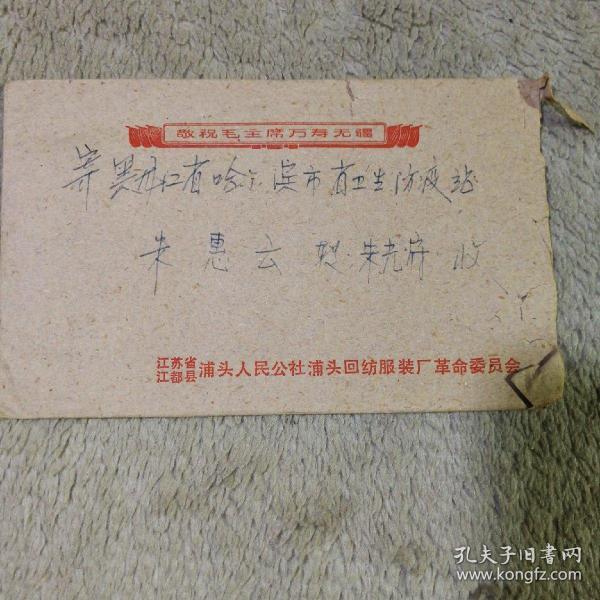 敬祝毛主席万寿无疆
寄黑龙江省哈尔滨市省卫生防疫站
朱惠云 朱光 收
江苏省
江都县 浦头人民公社浦头回纺服装厂革命委员会
孔夫子旧书网
www.kongfz.com